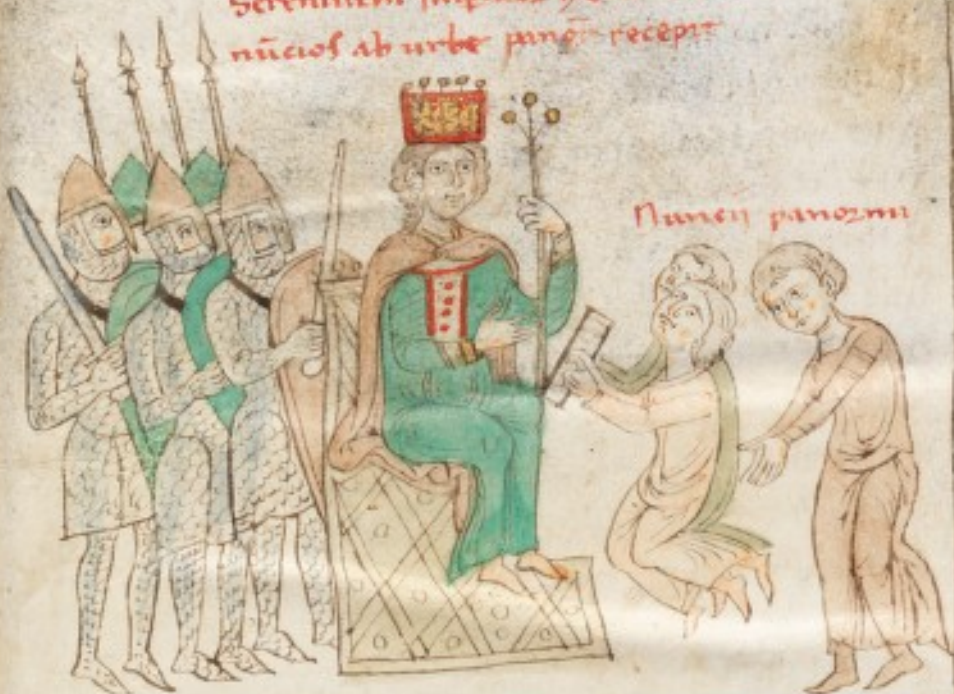 nūcios ab urbe panor̄ recepit
Nuncii panormi